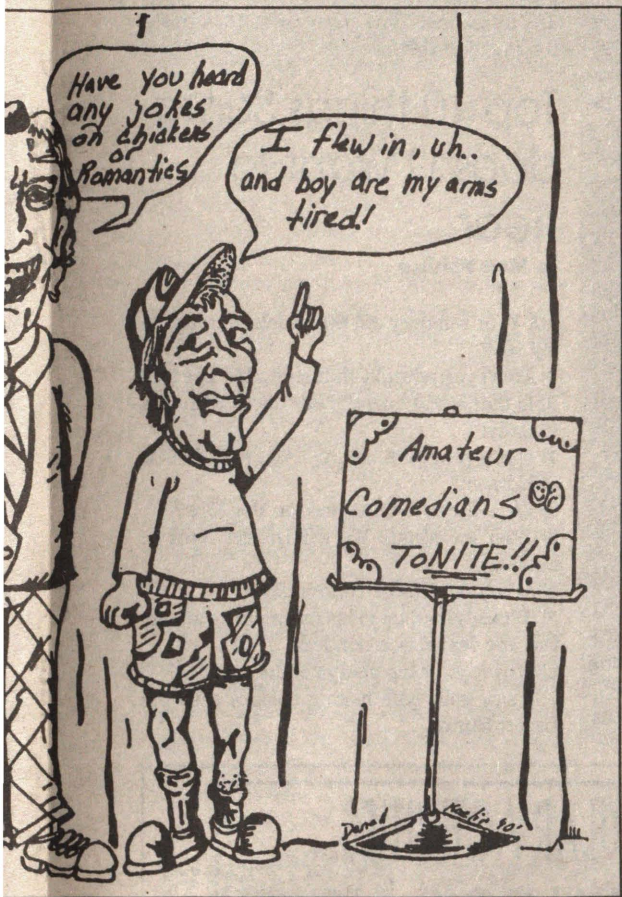 Have you heard
any jokes
on chickens
or
Romantics
I flew in, uh..
and boy are my arms
tired!
Amateur
Comedians
ToNITE.!!
90-